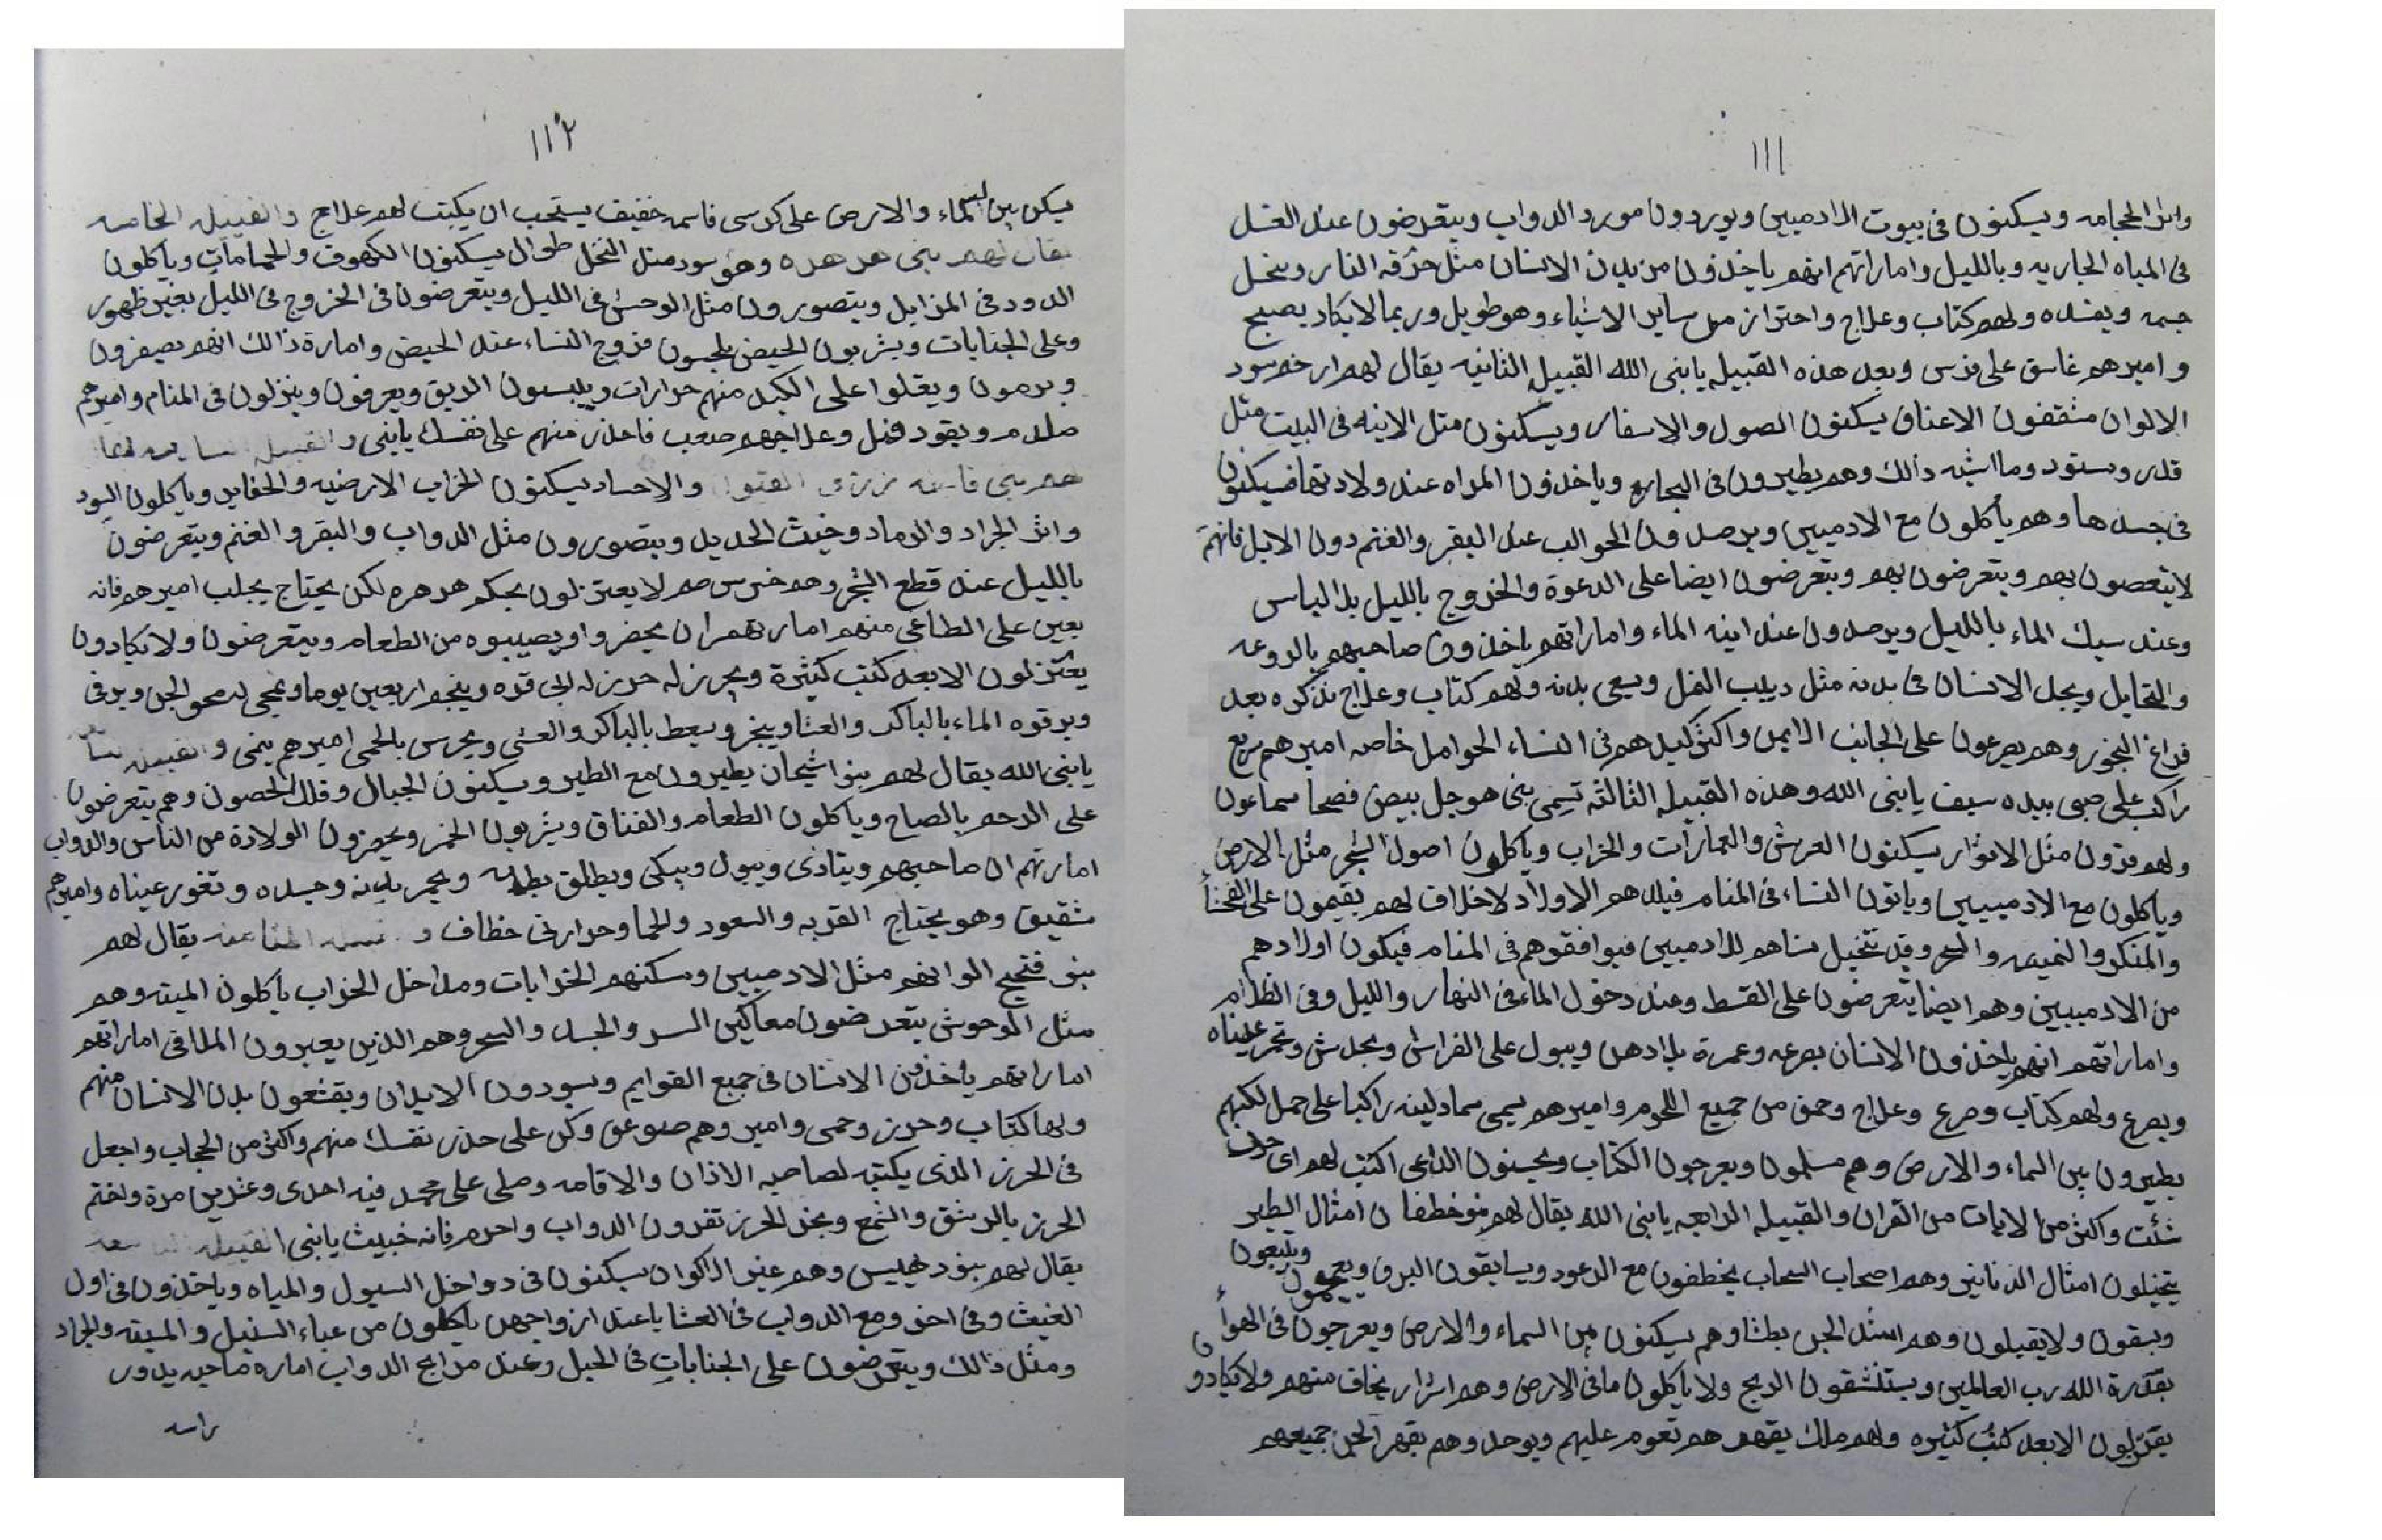 ١١١
واثر الحجامه ويسكنون فى بيوت الادميين ويوردون مورد الدواب ويتعرضون عند الغسل
فى المياه الجاريه وبالليل واماراتهم انهم ياخذون من بدن الانسان مثل حرقه النار وينحل
جسمه ويفسده ولهم كتاب وعلاج واحتراز من ساير الاشياء وهو طويل وربما لا يكاد يصبح
واميرهم غاسق على فرس وبعد هذه القبيله يا نبى الله القبيله الثانيه يقال لهم سود
الالوان مثقفون الاعناق يسكنون الصول والاسفار ويسكنون مثل الانيه فى البيت مثل
قدر وستود وما اشبه ذالك وهم يطيرون فى وياخذون المراه عند ولادتها فيسكنون
فى جسدها وهم يأكلون مع الادميين ويرصدون الحوالب عند البقر والغنم دون الابل فانهم
لا يتعصون بهم ويتعرضون بهم ويتعرضون ايضا على الدعوة والخروج بالليل بلا لباس
وعند سبك الماء بالليل ويرصدون عند انيه الماء واماراتهم ياخذون صاحبهم بالروعه
والتخايل ويجد الانسان فى بدنه مثل دبيب النمل بدنه ولهم كتاب وعلاج نذكره بعد
فراغ البخور وهم يصرعون على الجانب الايمن واكثر كيدهم فى النساء الحوامل خاصه اميرهم
راكب على صبى بيده سيف يا نبى الله وهذه القبيله الثالثه تسمى بنى هوجل بيض فصحا سماعون
ولهم قرون مثل الاثوار يسكنون العرش والعمارات والخراب وياكلون اصول الشجر مثل الارض
وياكلون مع الادميين وياتون النساء فى المنام الاولاد لاخلاق لهم يقيمون على الفحشاء
والمنكر والنميمه والسحر وقد تتخيل نساهم للادميين فيوافقوهم فى المنام فيكون اولادهم
من الادميين وهم ايضا يتعرضون على القسط وعند دخول الماء فى النهار والليل وفى الظلام
واماراتهم انهم ياخذون الانسان بصرعه وغمرة ويبول على الفراش وتحمر عيناه
ويصرع ولهم كتاب وصرع وعلاج وحمق من جميع اللحوم واميرهم يسمى راكبا على جمل لكنهم
يطيرون بين السماء والارض وهم مسلمون ويعرجون الكتاب ويحسنون الداعى اكتب لهم اى حرف
شئت واكثر من الايات من القران والقبيله الرابعه يا نبى الله يقال لهم بنو خطفان امثال الطير
يتخيلون امثال الدنانير وهم اصحاب السحاب يخطفون مع الرعود ويسابقون البرق ويتبعون
ويسقون ولا يقبلون وهم اشد الجن بطشا وهم يسكنون بين السماء والارض ويعرجون فى الهواء
بقدرة الله رب العالمين ويستنشقون الريح ولا ياكلون ما فى الارض وهم اشرار يخاف منهم ولا يكادون
يعتزلون الا بعد كتب كثيره ولهم ملك يقهرهم تعوم عليهم ويوحد وهم يقهر الجن جميعهم
١١٢
يكن بين السماء والارض على كرسى فاسمه خفيف يستحب ان يكتب لهم علاج والقبيله الخامسه
يقال لهم بنى هدهده وهم سود مثل النخل طوال يسكنون الكهوف والحمامات وياكلون
الدود فى المزابل ويتصورون مثل الوحش فى الليل ويتعرضون فى الخروج فى الليل بغير ظهور
وعلى الجنابات ويشربون الحيض فروج النساء عند الحيض وامارة ذالك انهم يصفرون
ويرمون ويقلوا على الكبد منهم حرارات وييبسون الريق ويعرفون وينزلون فى المنام واميرهم
ويقود فيل وعلاجهم صعب فاحذر منهم على نفسك يا نبى والقبيله
هم بنى والاجساد يسكنون الخراب الارضيه والحفاير وياكلون
واثر الجراد والرماد وخبث الحديد ويتصورون مثل الدواب والبقر والغنم ويتعرضون
بالليل عند قطع الشجر وهم خرس صم لا يعتزلون بحكم هدهره لكن يحتاج يجلب اميرهم فانه
يعين على الطاغى منهم امارتهم ان يحضروا ويصيبوه من الطعام ويتعرضون ولا يكادون
يعتزلون الا بعد كتب كثيرة ويحرز له حرز له وينجم اربعين يوما ويمحى له محو الجن ويرقى
ويرقوه الماء بالباكر والعشاء ويبخر ويسعط بالباكر والعشى ويحرس بالحمى اميرهم
يا نبى الله يقال لهم بنو اشيحان يطيرون مع الطير ويسكنون الجبال وقلل الحصون وهم يتعرضون
على الرحم بالصاح وياكلون الطعام والفناق ويشربون الخمر ويحضرون الولادة من الناس والدواب
امارتهم ان صاحبهم ويتاذى ويبول ويبكى ويطلق بطنه ويحمر بدنه وجسده وتغور عيناه واميرهم
شقيق وهو يحتاج القربه والسعود والحما خطاف يقال لهم
بنو فتجيح الوانهم مثل الادميين ومسكنهم الخرابات ومداخل الخراب ياكلون الميته وهم
مثل الوحوش يتعرضون والحسد والسحر وهم الذين يعبرون اماراتهم
اماراتهم ياخذون الانسان فى جميع القوايم ويسودون الابدان ويقشعون بدن الانسان منهم
ولها كتاب وحرز وحمى وامير وهم صوعق وكن على حذر نفسك منهم واكثر من الحجاب واجعل
فى الحرز الذى يكتب لصاحبه الاذان والاقامه وصلى على محمد فيه احدى وعشرين مرة واختم
الحرز والشمع وبخر الحرز بقرون الدواب واحرم فانه خبيث يا نبى القبيله التاسعه
يقال لهم بنو دهليس وهم غبر الاكوان يسكنون فى دواخل السيول والمياه وياخذون فى اول
الغيث وفى اخره ومع الدواب فى العشايا عند ازواجهن ياكلون من السنبل والميته والجراد
ومثل ذالك ويتعرضون على الجنابات فى الجبل وعند مرابح الدواب اماره صاحبه يدور
راسه